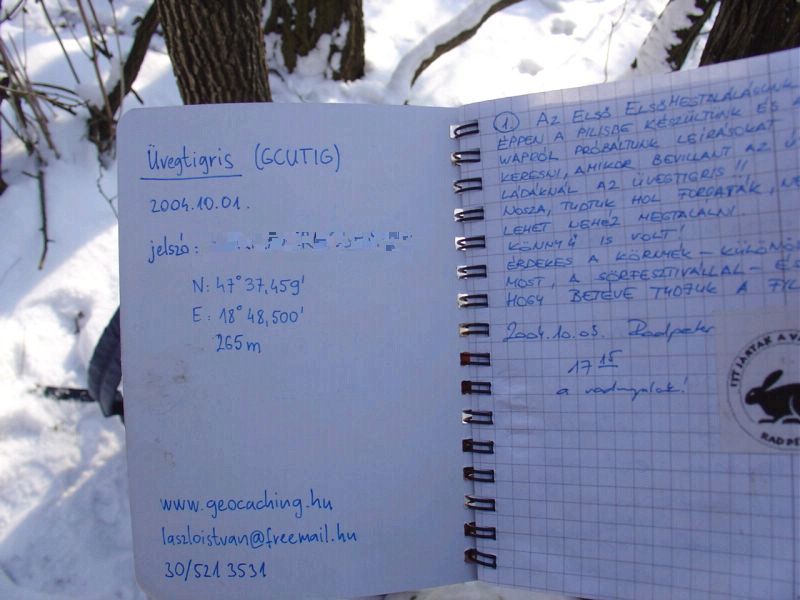 Üvegtigris (GCUTIG)
2004.10.01.
jelszó:
N: 47° 37,459'
E: 18° 48,500'
265m
www.geocaching.hu
laszloistvan@freemail.hu
30/521 3531
① AZ ELSŐ ELSŐMEGTALÁLÁSUNK
ÉPPEN A PILISBE KÉSZÜLTÜNK ÉS A
WAPRÓL PRÓBÁLTUNK LEÍRÁSOKAT
KERESNI, AMIKOR BEVILLANT AZ Ú
LÁDÁKNÁL AZ ÜVEGTIGRIS!!
NOSZA, TUDTUK HOL FORGATTÁK, NE
LEHET NEHÉZ MEGTALÁLNI.
KÖNNYŰ IS VOLT!
ÉRDEKES A KÖRNYÉK - KÜLÖNÖ
MOST, A SÖRFESZTIVÁLLAL - ÉS
HOGY BETÉVE TUDJUK A FIL
2004.10.03. Radpeter
17 15
a vadnyulak!
ITT JÁRTAK A VA
RADPE